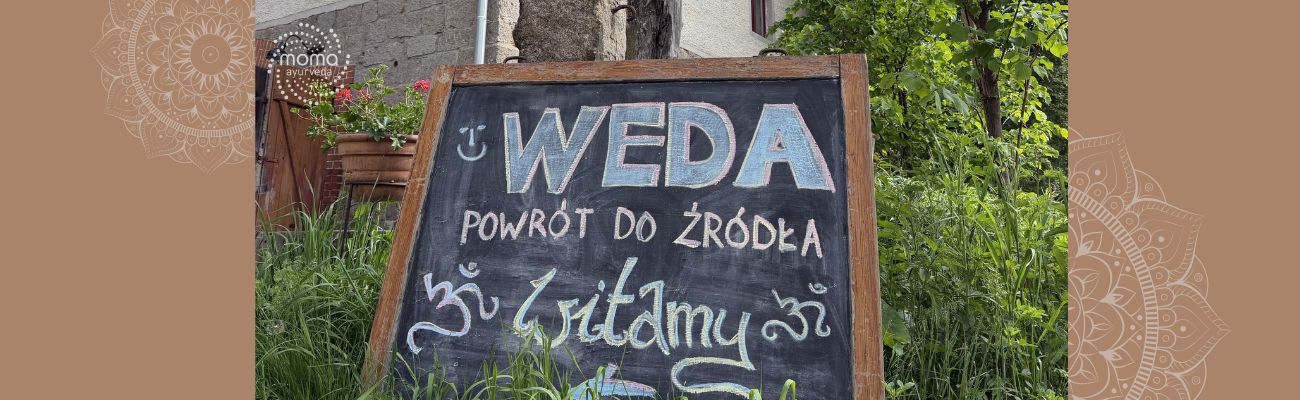 moma
ayurveda
WEDA
POWRÓT DO ŹRÓDŁA
ॐ Witamy ॐ